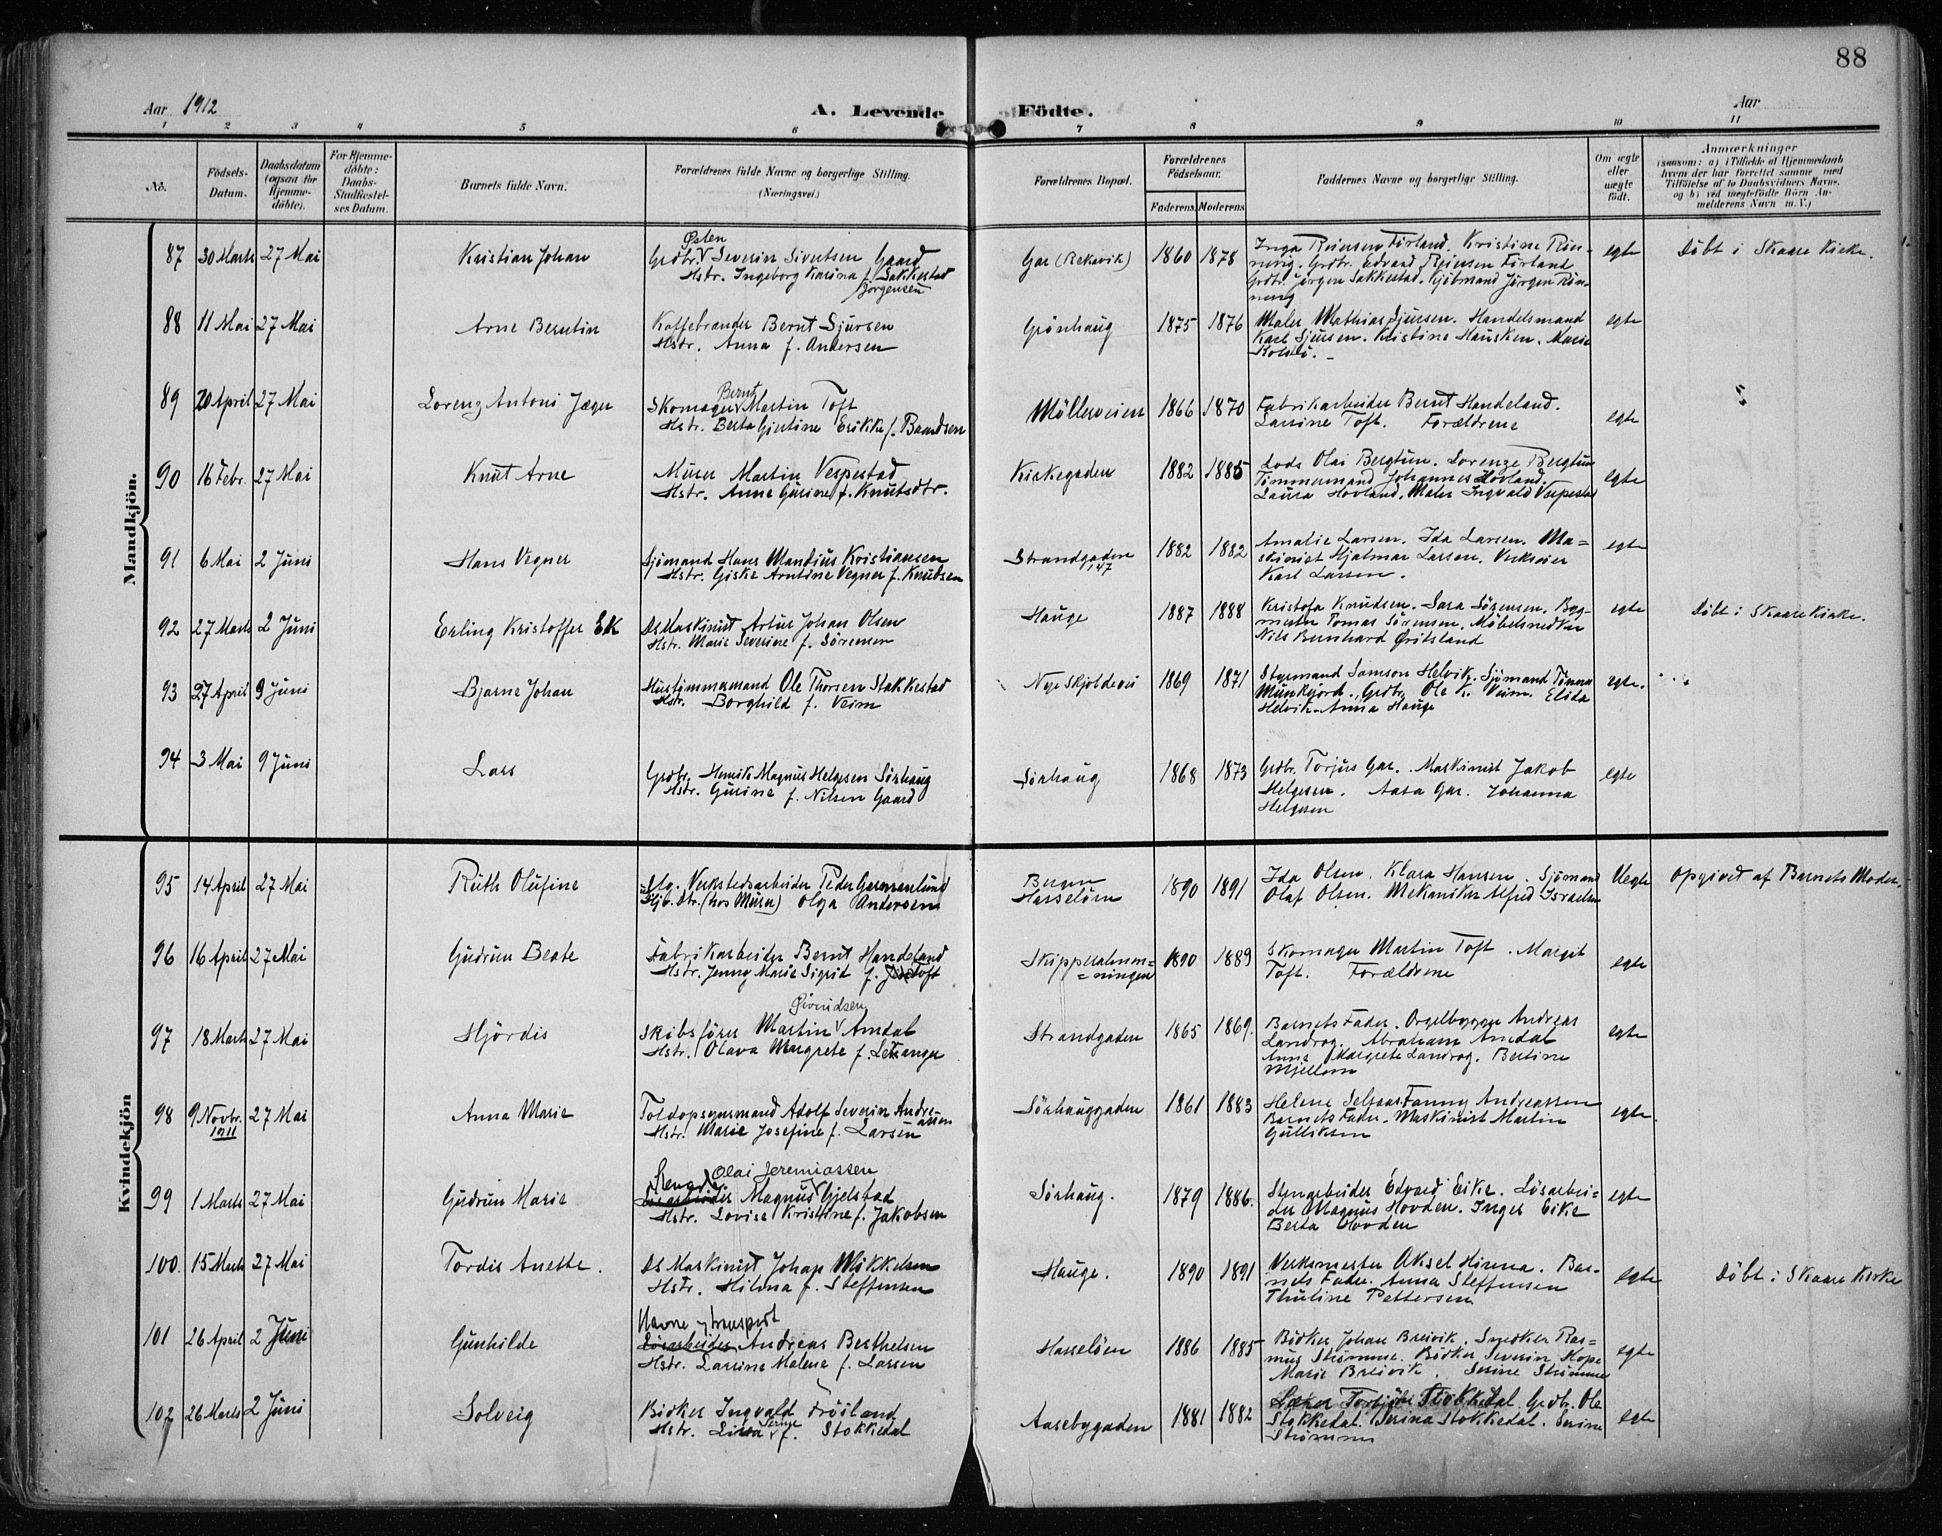 88
Aar 1912
A. Levende Födte.
Aar
1 2 3 4 5 6 7 8 9 10 11
No.
Födsels-Datum.
Daabsdatum (ogsaa for Hjemme-döbte).
For Hjemme-döbte: Daabs-Stadfæstel-ses Datum.
Barnets fulde Navn.
Forældrenes fulde Navne og borgerlige Stilling. (Næringsvei.)
Forældrenes Bopæl.
Forældrenes Födselsaar.
Faderens. Moderens
Faddernes Navne og borgerlige Stilling.
Om ægte eller uægte födt.
Anmærkninger
(saasom: a) i Tilfælde af Hjemmedaab hvem der har forrettet samme med Tilföielse af to Daabsvidners Navne, og b) ved uægtefödte Börn An-melderens Navn m. V.)
Mandkjön.
87 30 Marts 27 Mai Kristian Johan
Østen
Grdbr. Severin Sivertsen Gaard
Hstr. Ingeborg Karina f. Sakkestad
Jørgensen
Gar (Bekavik) 1860 1878
Inga Reiersen Førland. Kristine Røn-
nevig. Grdbr. Edvard Reiersen Førland
Grdbr. Jørgen Sakkestad. Kjøbmand Jørgen Røn-
nevig
egte Døbt i Skaare Kirke.
88 11 Mai 27 Mai Arne Berntin
Kaffebrænder Bernt Sjursen
Hstr. Anna f. Andersen
Grønhaug 1875 1876
Maler Mathias Sjursen. Handelsmand
Karl Sjursen. Kristine Hausken. Marie
egte
89 20 April 27 Mai Lorenz Antoni Jæger
Bernt
Skomager Martin Toft
Hstr. Berta Gjertine Erikke f. Baardsen
Möllerveien 1866 1870
Fabrikarbeider Bernt Handeland.
Larsine Toft. Forældrene
egte
90 16 Febr. 27 Mai Knut Arne
Murer Martin Vespestad
Hstr. Anne Gurine f. Knutsdtr.
Kirkegaden 1882 1885
Lods Olai Bergtun. Lorenze Bergtun
Tømmermand Johannes Hovland.
Laura Hovland. Maler Ingvald Vespestad
egte
91 6 Mai 2 Juni Hans Vegner
Sjömand Hans Mandius Kristiansen
Hstr. Giske Arntine Vegner f. Knudsen
Strandgaden
147
1882 1882
Amalie Larsen. Ida Larsen. Ma-
skinist Hjalmar Larsen. Verkseier
Karl Larsen.
egte
92 27 Marts 2 Juni Erling Kristoffer Ek
Ds Maskinist Artur Johan Olsen
Hstr. Marie Severine f. Sörensen
Hauge 1887 1888
Kristofa Knudsen. Sara Sørensen. Byg-
mester Tomas Sørensen. Møbelsnedker
Nils Bernhard Øritsland
egte Døbt i Skaare Kirke.
93 27 April 9 Juni Bjarne Johan
Hustömmermand Ole Thorsen Stakkestad
Hstr. Borghild f. Veim
Nye Skjoldevei 1869 1871
Styrmand Samson Helvik. Sjömand Tønna
Munkejord. Grdbr. Ole K. Veim. Elida
Helvik. Anna Hauge
egte.
94 3 Mai 9 Juni Lars
Grdbr. Henrik Magnus Helgesen Sörhaug
Hstr. Gurine f. Nilsen Gaard
Sörhaug 1868 1873
Grdbr. Torjus Gar. Maskinist Jakob
Helgesen. Aasa Gar. Johanna
Helgesen
egte
Kvindekjön
95 14 April 27 Mai Ruth Olufine
Ulg. Verkstedsarbeider Peder Germanlund
Pig. Str. (hos Murer) Olga Andersen
Bergen
Hasseløen
1890 1891
Ida Olsen. Klara Hansen. Sjömand
Olaf Olsen. Mekaniker Alfred Israelsen
Uegte Opgivet af Barnets Moder.
96 16 April 27 Mai Gudrun Beate
Fabrikarbeider Bernt Handeland
Hstr. Jenny Marie Sigrid f. Toft
Skipperalmen-
=ningen
1890 1889
Skomager Martin Toft. Margit
Toft. Forældrene
egte
97 18 Marts 27 Mai Hjördis
Øivindsen
Skibsförer Martin Amdal
Hstr. Olava Margrete f. Letanger
Strandgaden 1865 1869.
Barnets Fader. Orgelbygger Andreas
Landrøg. Abraham Amdal
Anne Margrete Landrøg. Bertine
Mjellem
egte
98 9 Novbr. 27 Mai Anna Marie
1911
Toldopsynsmand Adolf Severin Andre-
assen
Hstr. Marie Josefine f. Larsen
Sörhauggaden 1861 1883
Helene Selsaas Fanny Andreassen
Barnets Fader. Maskinist Martin
Gulliksen
egte
99 1 Marts 27 Mai Gudrun Marie
Olai Jeremiassen
Magnus Gjelstad
Hstr. Lovise Kristine f. Jakobsen
Sörhaug. 1879 1886.
Stenarbeider Edvard Eike. Løsarbei-
der Magnus Hovden. Inger Eike
Berta Hovden
egte
100. 15 Marts 27 Mai Tordis Anette.
Ds Maskinist Johan Mikkelsen
Hstr. Hilma f. Steffensen
Hauge. 1890 1891
Verksmester Aksel Hinna. Bar-
nets Fader. Anna Steffensen
Thuline Pettersen
egte Døbt i Skaare Kirke
101 26 April 2 Juni Gunhilde
Havne transport
Løsarbeider Andreas Berthelsen
Hstr. Larsine Malene f. Larsen
Hasselöen 1886 1885
Bødker Johan Breivik. Snedker Ras-
mus Strømme. Bødker Severin Hope
Marie Breivik. Serine Strømme
egte
102 26 Marts 2 Juni Solveig
Bödker Ingvald Fröiland
Hstr. Lina Serine f. Stokkedal
Aasebygaden 1881 1882
Torbjør Stokkedal. Grdbr. Ole
Stokkedal. Serina Stokkedal. Serine
Strømme
egte